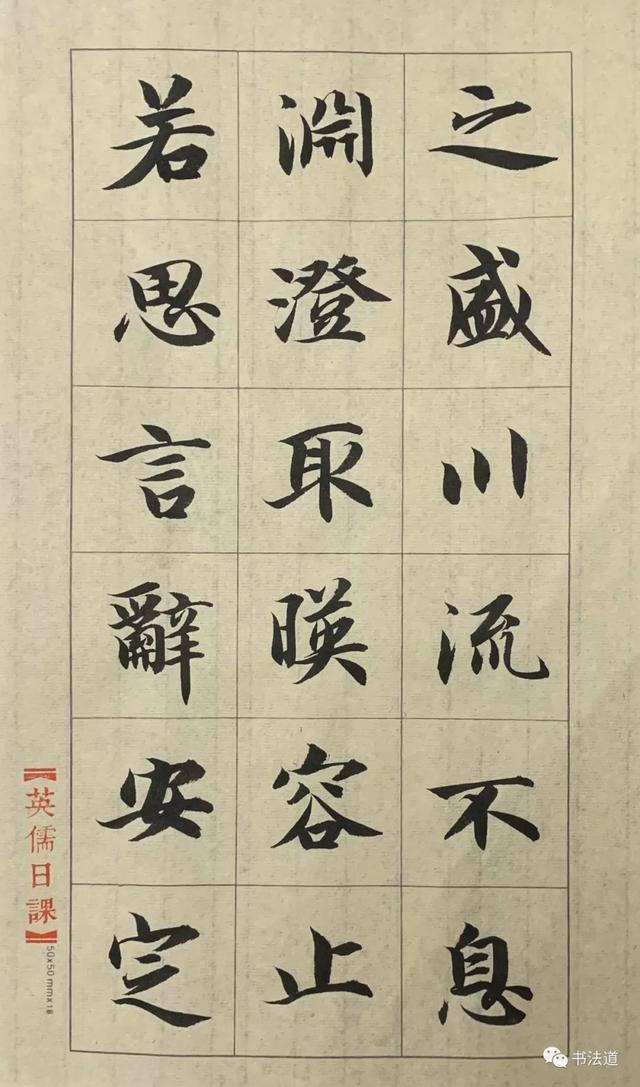 之盛川流不息
淵澄取暎容止
若思言辭安定
【英儒日課】
50x50mmx18
书法道